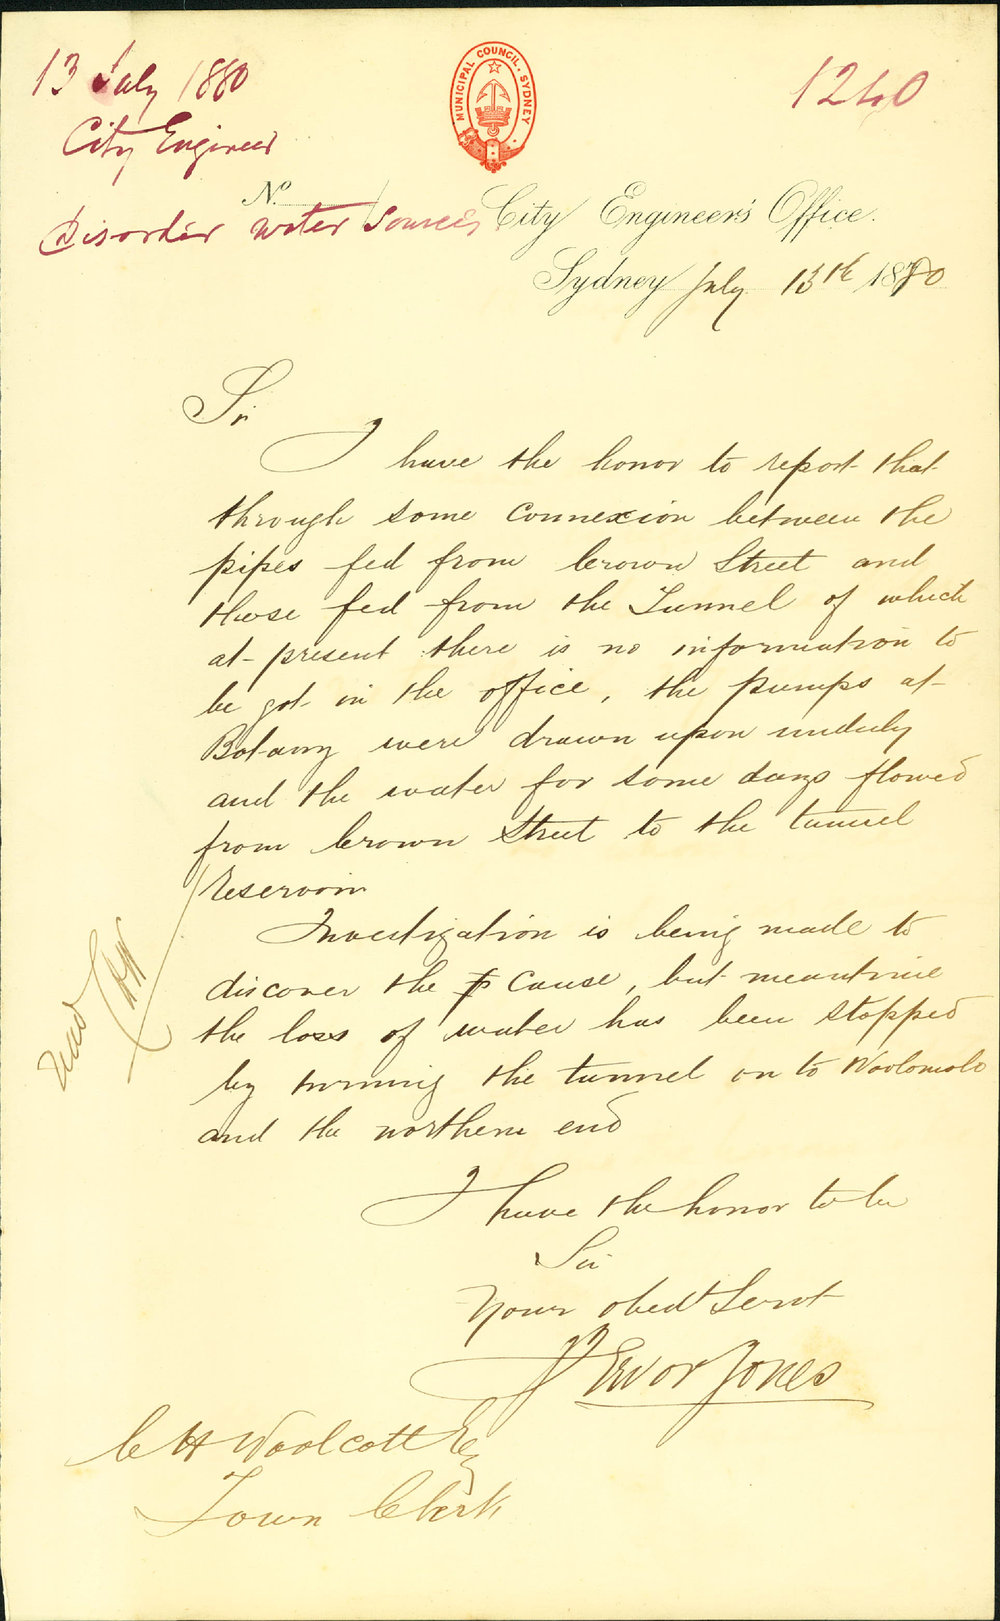 13 July 1880
City Engineer
Disorder Water Sources
1240
MUNICIPAL COUNCIL. SYDNEY
No.
City Engineer's Office.
Sydney July 13th 1880
Sir
I have the honor to report that
through some connexion between the
pipes fed from Crown Street and
those fed from the Tunnel of which
at present there is no information to
be got in the office, the pumps at
Botany were drawn upon unduly
and the water for some days flowed
from Crown Street to the tunnel
reservoir
Investigation is being made to
discover the cause, but meantime
the loss of water has been stopped
by turning the tunnel on to Woolomolo
and the northern end
I have the honor to be
Sir
Your obedt Servt
Trevor Jones
C H Woolcott Esq
Town Clerk
Read